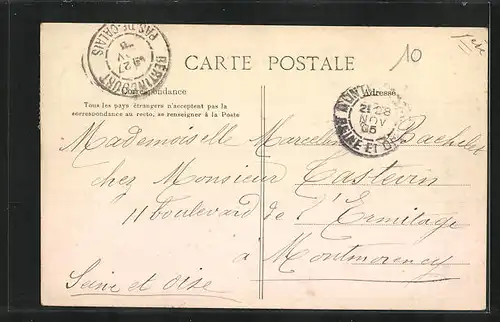 CARTE POSTALE
10
Correspondance
Adresse
Tous les pays étrangers n'acceptent pas la
correspondance au recto, se renseigner à la Poste
BERTINCOURT
PAS DE CALAIS
27
21 28
NOV
SEINE ET
Mademoiselle Marcelline Bachelet
chez Monsieur Castevin
11 boulevard de l'Ermitage
à Montmorency
Seine et Oise